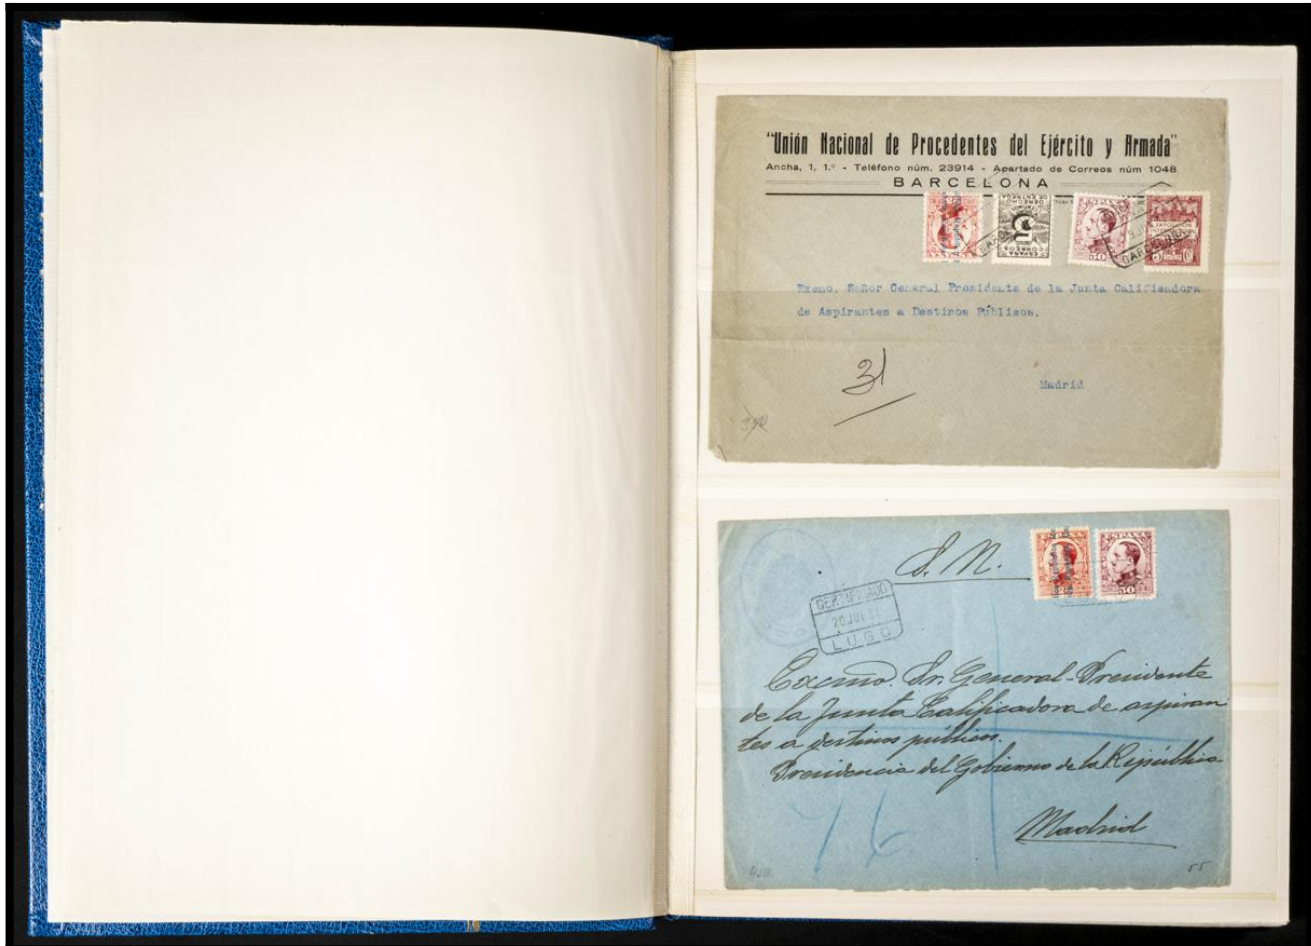 "Unión Nacional de Procedentes del Ejército y Armada"
Ancha, 1, 1.º - Teléfono núm. 23914 - Apartado de Correos núm 1048
BARCELONA
ESPAÑA
CORREOS
DERECHO
DE ENTREGA
5
50
EXPOSICIÓN
5
BARCELONA
Excmo. Señor General Presidente de la Junta Calificadora
de Aspirantes a Destinos Públicos.
31
Madrid
S. N.
50
CERTIFICADO
20 JUL
LUGO
Excmo. Sr. General-Presidente
de la Junta Calificadora de aspiran
tes a destinos públicos.
Presidencia del Gobierno de la República
Madrid
55